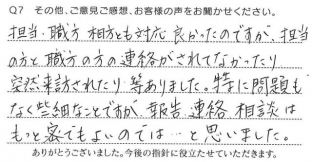 Q7 その他、ご意見ご感想、お客様の声をお聞かせください。
担当・職方 相方とも対応 良かったのですが、担当
の方と 職方の方の 連絡がされてなかったり
突然来訪されたり 等ありました。特に問題も
なく些細なことですが、報告、連絡、相談は
もっと密でもよいのでは…と思いました。
ありがとうございました。今後の指針に役立たせていただきます。